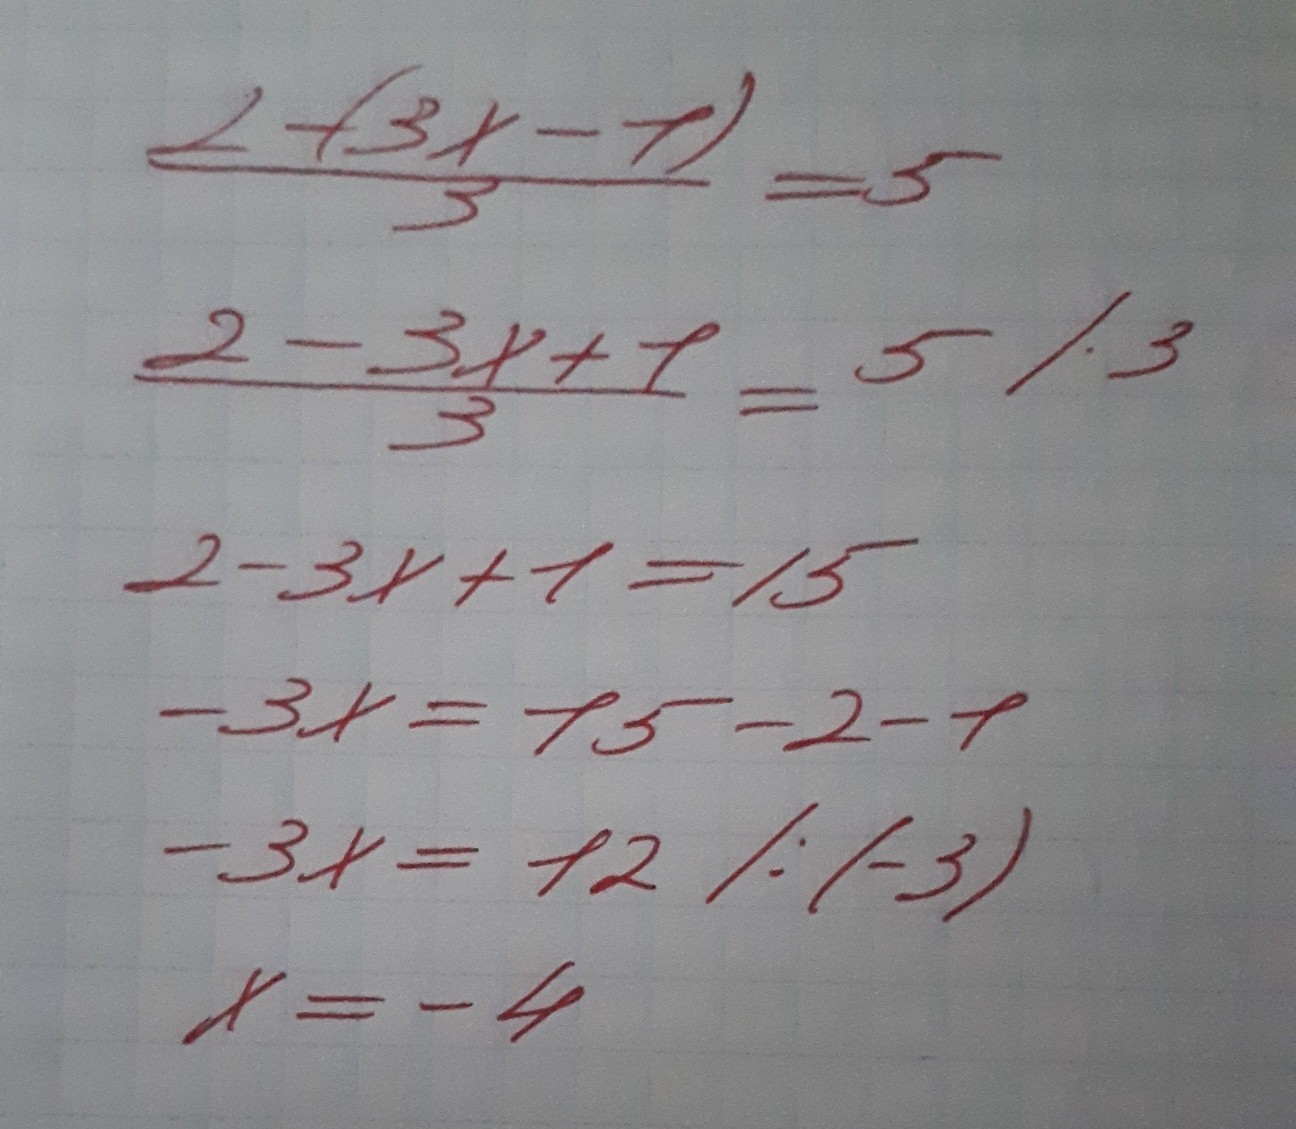 2-(3x-1)/3 = 5
2-3x+1/3 = 5 /·3
2-3x+1=15
-3x=15-2-1
-3x=12 /:(-3)
x=-4